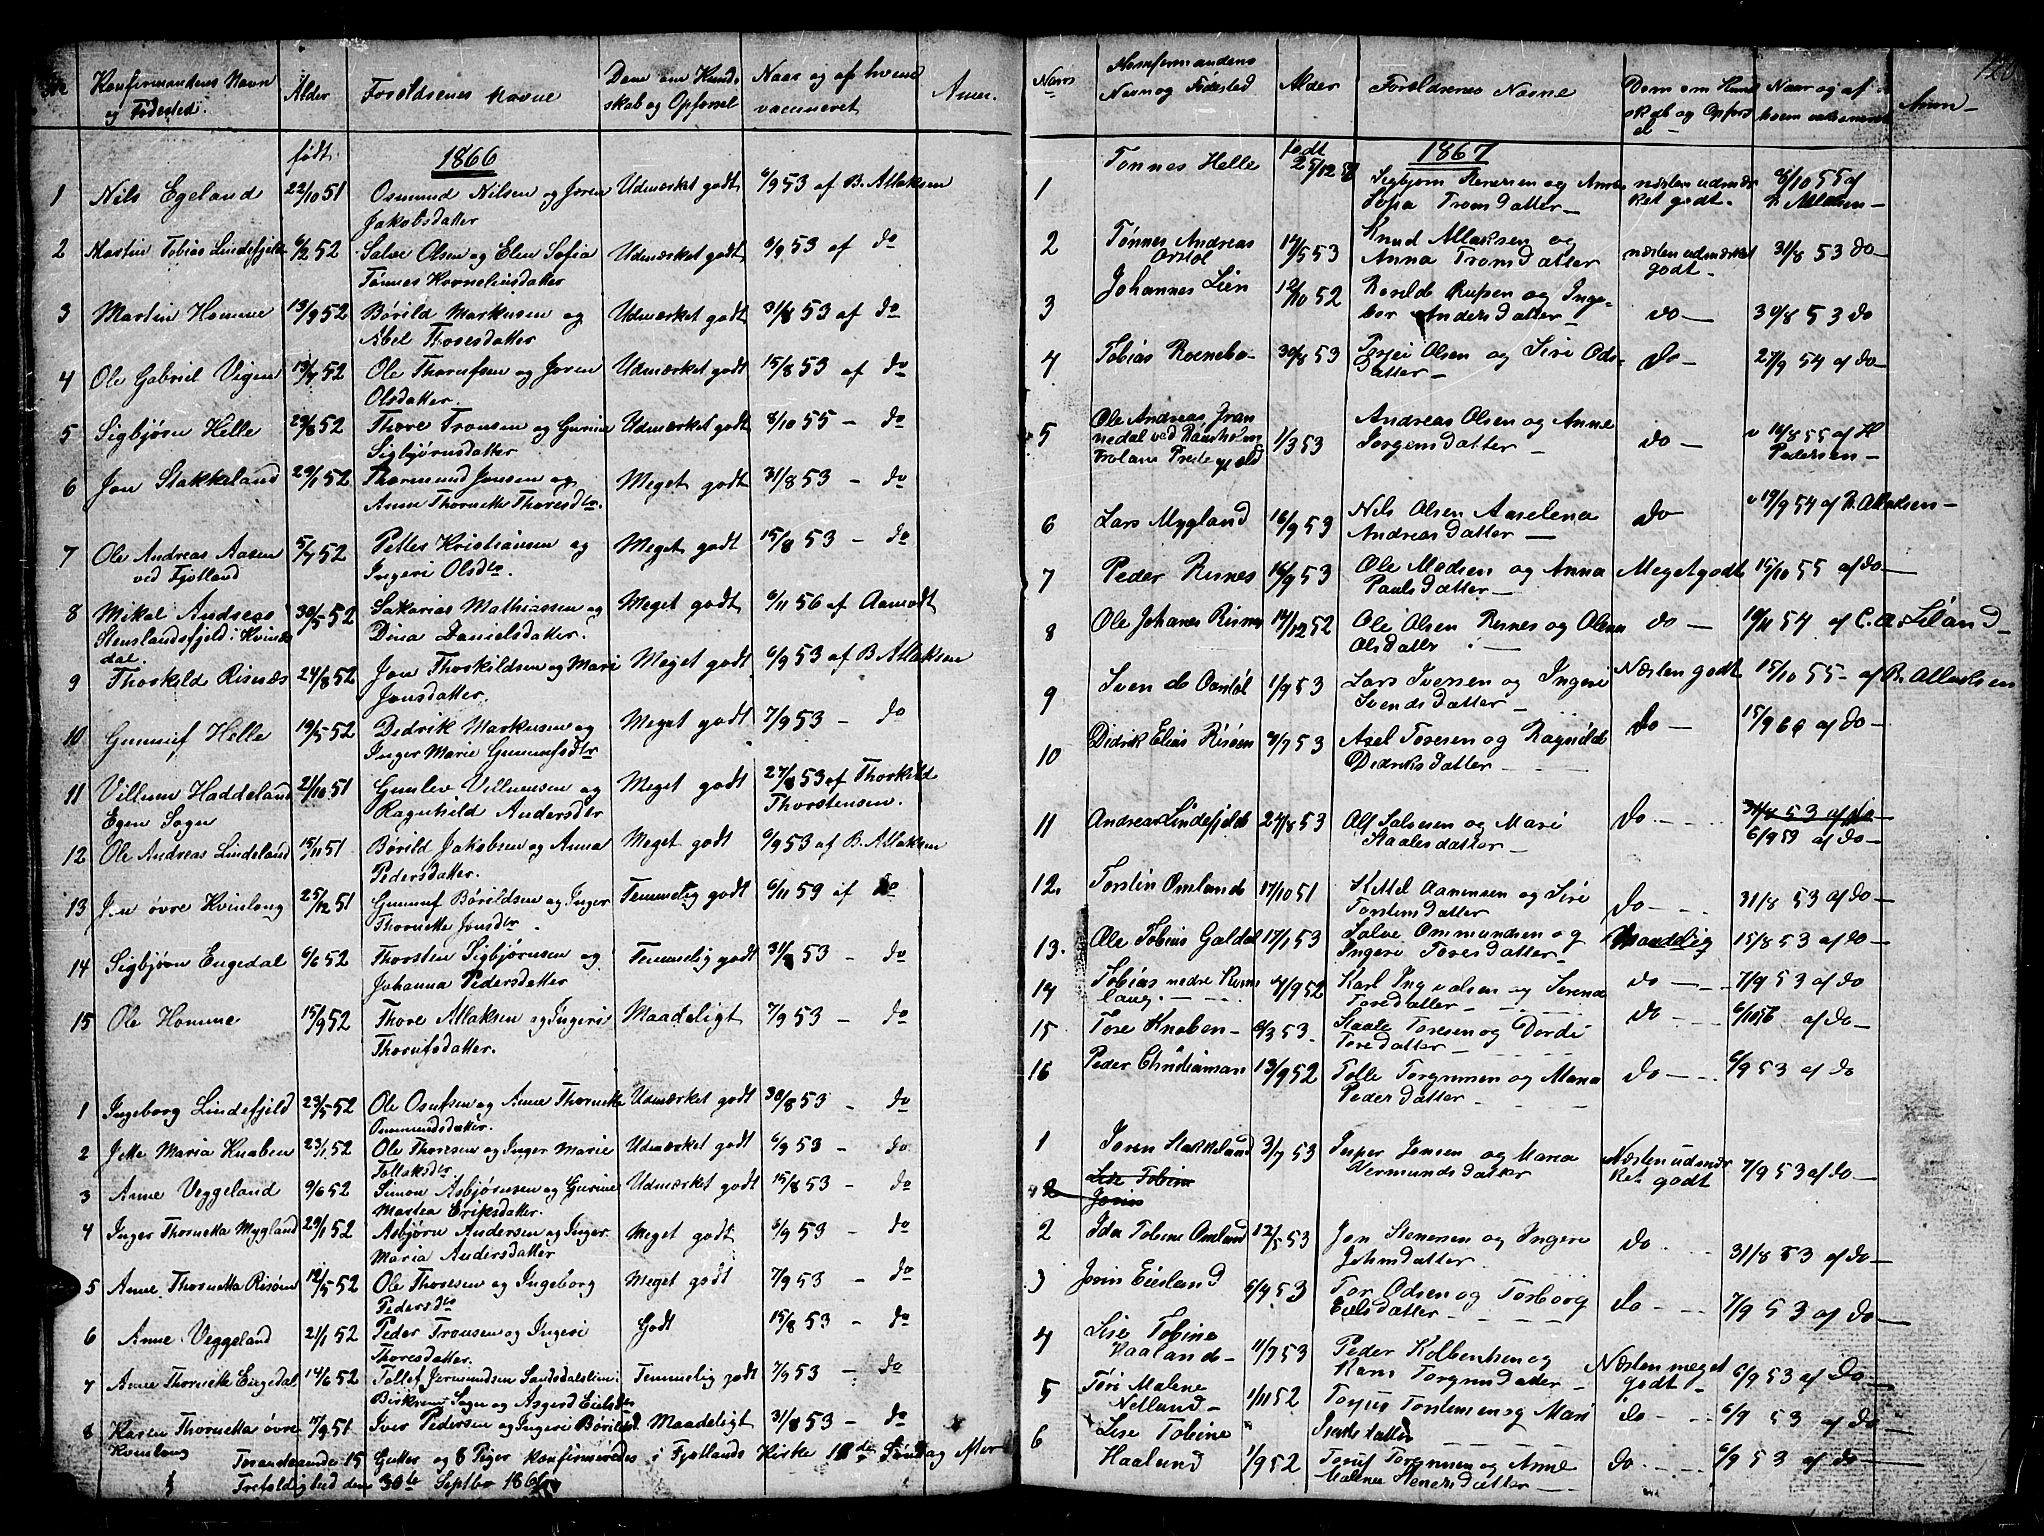 Konfirmandens Navn og Fødested.
Alder
Forældrenes Navne
Dom om Kundskab og Opførsel
Naar og af hvem vaccineret
Anm.
født
1866
1 Nils Egeland 22/10 51 Osmund Nilsen og Joren Udmærket godt 6/9 53 af B. Atlaksen
Jakobsdatter
2 Martin Tobias Lindefjeld 6/2 52 Salve Olsen og Elen Sofia Udmærket godt 6/9 53 af do
Tønnes Korneliusdatter
3 Martin Homme 13/9 52 Børild Markusen og Udmærket godt 31/8 53 af do
Abel Thoresdatter
4 Ole Gabriel Vigen 52 Ole Thorufsen og Joren Udmærket godt 15/8 53 af do
Olsdatter.
5 Sigbjørn Helle 29/8 52 Thore Tronsen og Gurine Udmærket godt 8/10 55 – do
Sigbjørnsdatter
6 Jon Stakkeland 29/1 52 Thormund Jonsen og Meget godt 31/8 53 – do
Anne Thornette Thoresdtr.
7 Ole Andreas Aasen 5/7 52 Petter Kristiansen og Meget godt 15/8 53 – do
ved Fjotland Ingeri Olsdtr.
8 Mikal Andreas 30/5 52 Sakarias Mathiassen og Meget godt 6/11 56 af Aamodt
Stenslandsfjeld i Kvinesdal. Dina Danielsdatter.
9 Thorkild Risnæs 24/8 52 Jon Thorkildsen og Mari Meget godt 6/9 53 af B. Atlaksen
Jonsdatter.
10 Gunnuf Helle 19/5 52 Didrik Markusen og Meget godt 7/9 53 – do
Inger Marie Gunnufsdtr
11 Villum Haddeland 21/10 51 Gunlev Villumsen og Meget godt 27/8 53 af Thorkild
Egen Sogn Ragnhild Andersdtr Thorstensen.
12 Ole Andreas Lindeland 15/11 51 Børild Jakobsen og Anna Meget godt 6/9 53 af B. Atlaksen
Pedersdatter.
13 Jon øvre Kvinlong 25/12 51 Gunnuf Børildsen og Inger Temmelig godt 6/11 59 af do
Thornette Jonsdtr.
14 Sigbjørn Eugedal 6/6 52 Thorsten Sigbjørnsen og Temmelig godt 53 – do
Johanna Pedersdatter
15 Ole Homme 15/9 52 Thore Atlaksen og Ingeri Maadeligt 7/9 53 – do
Thorufsdatter.
1 Ingeborg Lindefjeld 23/5 52 Ole Osufsen og Anne Thornette Udmærket godt 30/8 53 – do
Ommundsdatter.
2 Jette Maria Knaben 23/1 52 Ole Thoresen og Inger Marie Udmærket godt 6/9 53 – do
Tollaksdtr
3 Anne Veggeland 9/6 52 Simon Asbjørnsen og Gurine Udmærket godt 15/8 53 – do
Martea Eriksdatter.
4 Inger Thornetta Mygland 29/1 52 Asbjørn Andersen og Inger Meget godt 6/9 53 – do
Maria Andersdatter
5 Anne Thornetta Risøen 12/5 52 Ole Thoresen og Ingeborg Meget godt 7/9 53 – do
Pedersdtr
6 Anne Veggeland 21/1 52 Peder Tronsen og Ingeri Godt 15/8 53 – do
Thoresdatter.
7 Anne Thornette Eugedal 14/6 52 Tollef Jermundsen Sandsdalslien i Temmelig godt 7/9 53 – do
Birkenes Sogn og Asgerd Eielsdtr
8 Karen Thornetta øvre 51 Iver Pedersen og Ingeri Børildsd. Maadeligt 31/8 53 – do
Kvinlong
Foranstaaende 15 Gutter og 8 Piger konfirmeredes i Fjotlands Kirke 18de Søndag efter
Trefoldighed den 30te Septbr 1866
Navn
Konfirmandens Navn og Fødested
Alder
Forældrenes Navne
Dom om Kundskab og Opførsel
Naar og af hvem vaksineret
Anm–
1867
1 Tønnes Helle født 25/12 5 Sigbjørn Renersen og Anne næsten udmærket godt. 8/10 55 af
Sofia Tronsdatter – B. Atlaksen –
2 Tønnes Andreas 14/5 53 Knud Atlaksen og næsten udmærket 31/8 53 do –
Aarstøl Anna Tronsdatter godt –
3 Johannes Lien 12/10 52 og Inge- do – 30/8 53 do
bor Andersdatter –
4 Tobias Roenebo – 30/8 53 Olsen og Siri Ods- do – 27/9 54 af do –
datter –
5 Ole Andreas Gran 1/3 53 Andreas Olsen og Anne do – v 16/8 55 af H
nedal ved Jørgensdatter – Pedersen –
Præstegjeld
6 Lars Mygland 16/9 53 Nils Olsen Aaselena do v 19/9 54 af B. Atlaksen –
Andreasdatter –
7 Peder Risnes 16/9 53 Ole Madsen og Anna Meget godt 15/10 55 af do –
Paulsdatter –
8 Ole Johanes Risnes 14/12 52 Ole Olsen Risnes og Olena do – 19/11 54 af C. A. Liland –
Olsdatter –
9 Sven do Aarstøl 1/9 53 Lars Iversen og Ingeri Næsten godt 15/10 55 – af B. Atlaksen
Svendsdatter –
10 Didrik Elias Risøen 9/7 53 Axel Toresen og Ragnilde do – 15/9 66 af do –
Didriksdatter –
11 Andreas Lindefjeld 24/8 53 Alf Salvesen og Mari do – 31/8 53 af do –
Staalesdatter – 6/9 53 af do –
12. Torstin Omland 17/10 51 Kittel Aanensen og Siri do – 31/8 53 af do –
Torstensdatter
13. Ole Tobias Galdal 17/1 53 Salve Ommundsen og Maadelig 15/8 53 af do –
Ingeri Toresdatter –
14 Tobias nedre Kvin 4/9 52 Karl Ingvalsen og Serena do – 7/9 53 af do
laug. Toredatter –
15 Tore Knaben – 9/3 53. Staale Toresen og Dordi do – 6/10 56 af do –
Toredatter –
16 Peder Christiansen 13/9 52 Tolle Torgrimsen og Maria do – 6/9 53 af do
Pedersdatter –
1 Joren Stakkeland 3/7 53 Jesper Jensen og Maria Næsten udmær 7/9 53 af do –
Germundsdatter ket godt
2 Lise Tobine
Jorin
2 Ida Tobine Omland 12/5 53 Jon Stenersen og Ingeri do – 31/8 53 af do –
Johnsdatter –
3 Jorin Eiesland 6/4 53 Tor Odsen og Torborg do – 7/9 53 af do –
Eielsdatter –
4 Lise Tobine 11/7 53 Peder Kolbensen og Næsten meget 6/9 53 af do –
Haaland – Karn Torgrimsdatter – godt –
5 Tøri Malene 1/11 52 Torjus Torstensen og Mari do – 6/9 53 af do –
Netland –
6 Lise Tobine 1/9 52 Toruf Torgrimsen og Anne do – 6/9 53 af do –
Haaland Malene Stenersdatter –